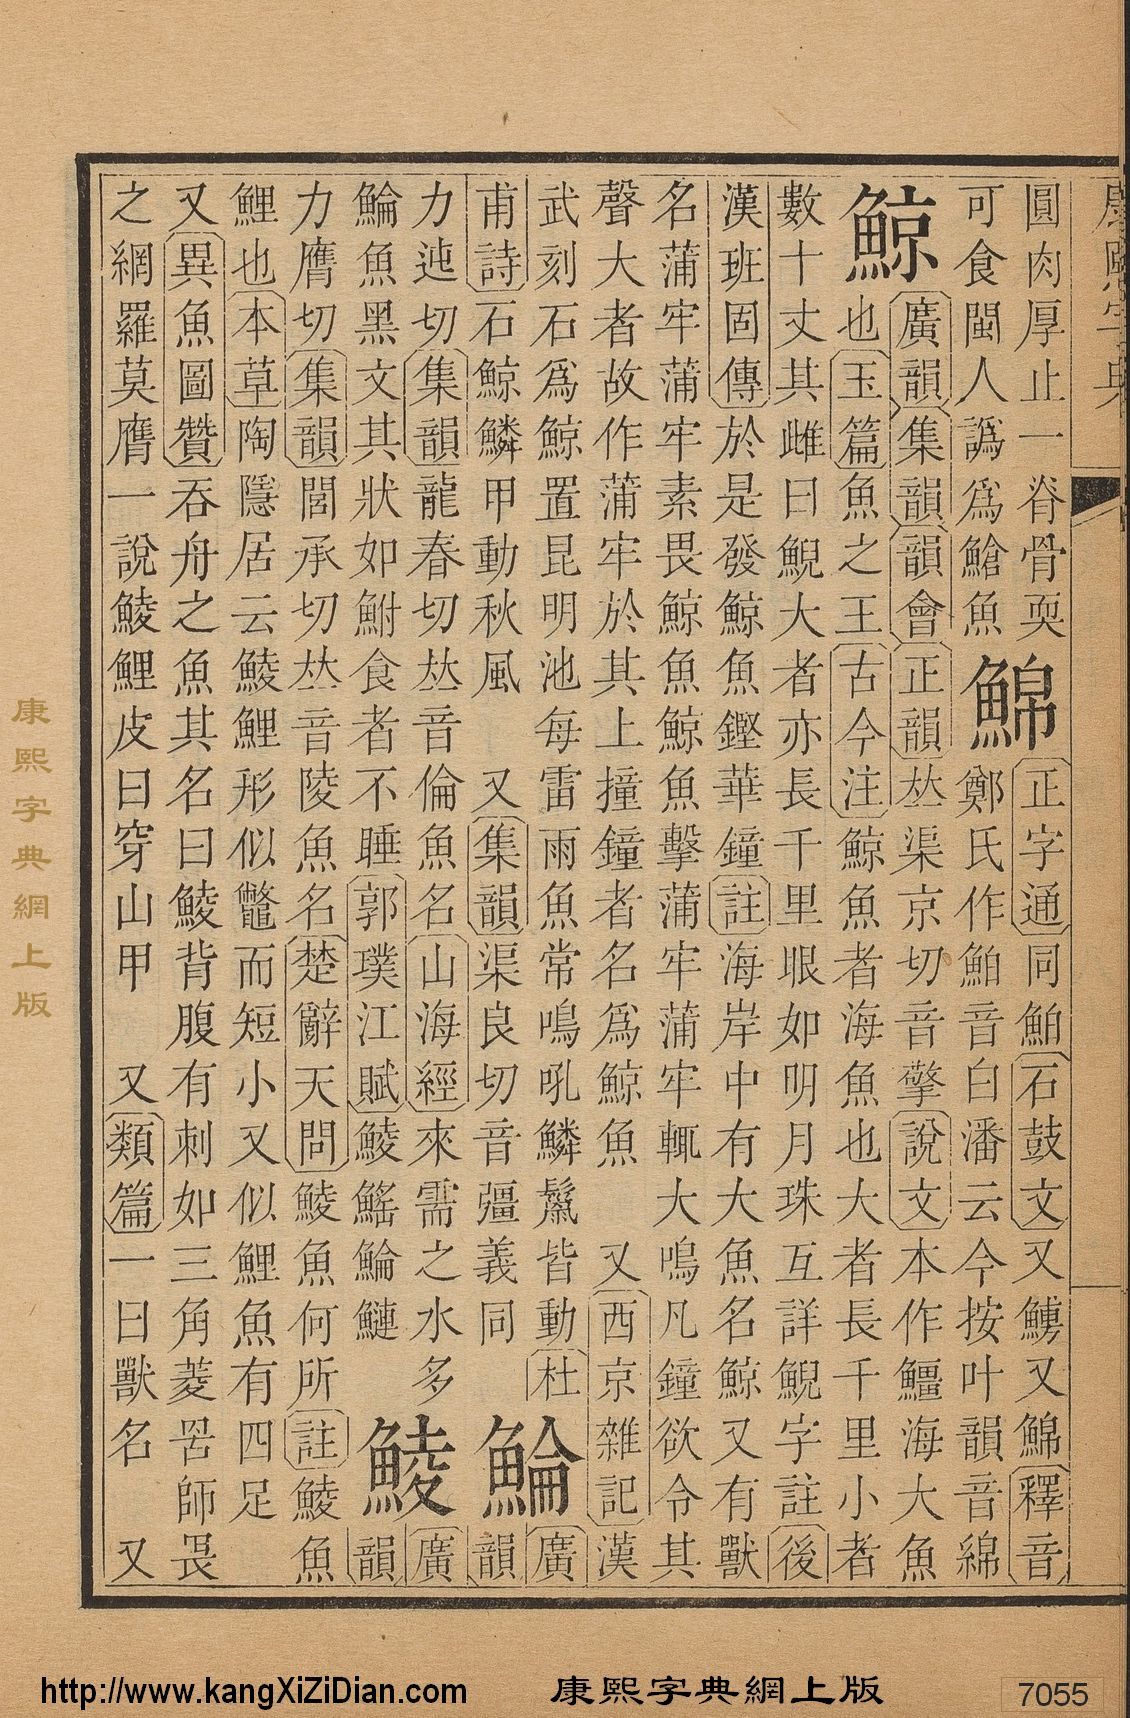 康熙字典
圓肉厚止一脊骨耎
正字通同鮊石鼓文又又釋音
可食閩人譌爲䱽魚
鄭氏作鮊音白潘云今按叶韻音綿
鯨
廣韻集韻韻會正韻𠀤渠京切音擎說文本作䲔海大魚
也玉篇魚之王古今注鯨魚者海魚也大者長千里小者
數十丈其雌曰鯢大者亦長千里眼如明月珠互詳鯢字註後
漢班固傳於是發鯨魚鏗華鐘註海岸中有大魚名鯨又有獸
名蒲牢蒲牢素畏鯨魚鯨魚擊蒲牢蒲牢輒大鳴凡鐘欲令其
聲大者故作蒲牢於其上撞鐘者名爲鯨魚 又西京雜記漢
武刻石爲鯨置昆明池每雷雨魚常鳴吼鱗鬣皆動杜
甫詩石鯨鱗甲動秋風 又集韻渠良切音彊義同
鯩
廣韻
力迍切集韻龍春切𠀤音倫魚名山海經來需之水多
鯩魚黑文其狀如鮒食者不睡郭璞江賦鯪鰩鯩鰱
鯪
廣韻
力膺切集韻閭承切𠀤音陵魚名楚辭天問鯪魚何所註鯪魚
鯉也本草陶隱居云鯪鯉形似鼈而短小又似鯉魚有四足
又異魚圖贊吞舟之魚其名曰鯪背腹有刺如三角菱罟師畏
之網羅莫膺一說鯪鯉皮曰穿山甲 又類篇一曰獸名 又
康熙字典網上版
http://www.kangXiZiDian.com 康熙字典網上版 7055